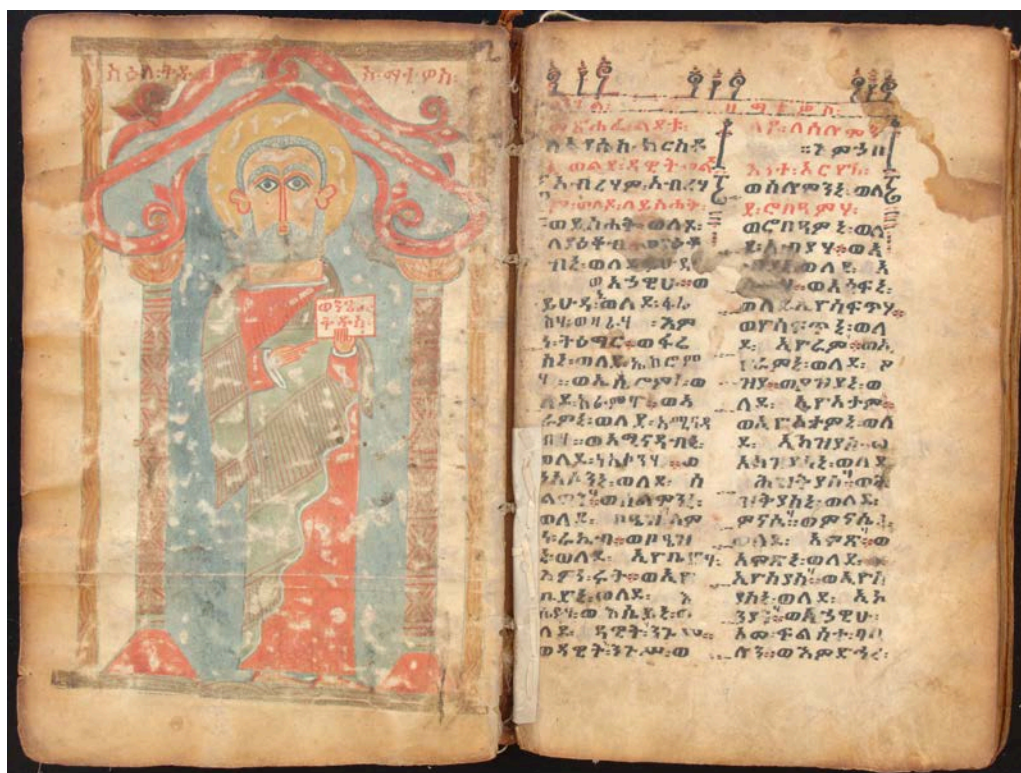 ስዕለ፡ቅዱ
ስ፡ማቴዎስ፡
ወንጌ
ቅዱስ፡
ዘ ማቴዎስ፡
መጽሐፈ፡ልደቱ፡
ለኢየሱስ፡ክርስቶ
ወልደ፡ዳዊት፡ወል
አብረሃም፡አብረሃ
ም፡ወለዶ፡ለይስሐቅ፡
ወይስሐቅ፡ወለደ፡
ለያዕቆብ፡ወያዕቆ
ብኒ፡ወለደ፡ይሁዳ
ወአኃዊሁ፡ወ
ይሁዳ፡ወለደ፡ፋሬ
ስሃ፡ወዛራሃ፡እም
ትዕማር፡ወፋሬ
ስኒ፡ወለደ፡ኤስሮም
ሃ፡፡ወኤስሮምኒ፡ወ
ለደ፡አራምሃ፡ወአ
ራምኒ፡ወለደ፡አሚናዳ
ብሃ፡፡ወአሚናዳብኒ፡
ወለደ፡ነአሶንሃ፡፡ወ
ነአሶንኒ፡ወለደ፡ሰ
ልሞንሃ፡፡ወሰልሞንኒ፡
ወለደ፡ቦዔዝሃ፡እም
ራኬብ፡፡ወቦዔዝ
ኒ፡ወለደ፡ኢዮቤድሃ፡
እምነ፡ሩት፡፡ወኢዮ
ቤድኒ፡ወለደ፡እ
ሴይሃ፡ወእሴይኒ፡ወ
ለደ፡ዳዊት፡ንጉሠ፡፡
ወዳዊት፡ንጉሥ፡ወ
ለዶ፡ለሰሎሞን
፡፡እምኃበ
እንተ፡ኦርዮ፡
ወሰሎሞንኒ፡ወለ
ደ፡ሮብዓምሃ፡
ወሮብዓምኒ፡ወለ
ደ፡አብያሃ፡፡ወአ
ብያኒ፡ወለደ፡አ
ሳፍሃ፡፡ወአሳፍኒ፡
ወለደ፡ኢዮሳፍጥሃ፡
ወዮሳፍጥኒ፡ወለ
ደ፡ኢዮራም፡፡ወኢ
ዮራምኒ፡ወለደ፡ዖ
ዝያ፡፡ወዖዝያኒ፡ወ
ለደ፡ኢዮአታም፡
ወኢዮአታምኒ፡ወለ
ደ፡አካዝያስ፡፡ወ
አካዝያስኒ፡ወለደ
ሕዝቅያስ፡፡ወሕ
ዝቅያስኒ፡ወለደ፡
ምናሴ፡፡ወምናሴኒ፡
ወለደ፡አሞጽ፡፡ወ
አሞጽኒ፡ወለደ፡
ኢዮስያስ፡፡ወኢዮስ
ያስኒ፡ወለደ፡ኢኮ
ንያ፡፡ወአኃዊሁ፡
አመ፡ፍልሰተ፡ባቢ
ሎን፡፡ወእምድኅረ፡